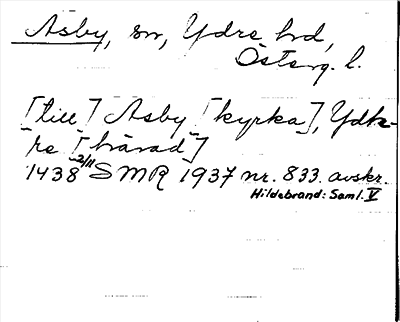 Asby, sn, Ydre hd,
Österg. l.
[till] Asby [kyrka], Ydh-
re [härad]
1438 2/11 SMR 1937 nr. 833. avskr.
Hildebrand: Saml. V